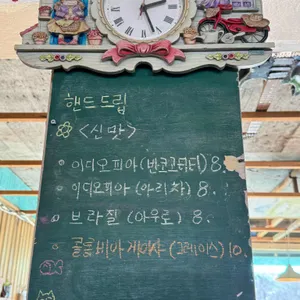 핸드드립
<신맛>
이디오피아 (반코고티티) 8.
이디오피아 (아리차) 8.
브라질 (아우로) 8.
콜롬비아 게이샤 (그레이스) 10.